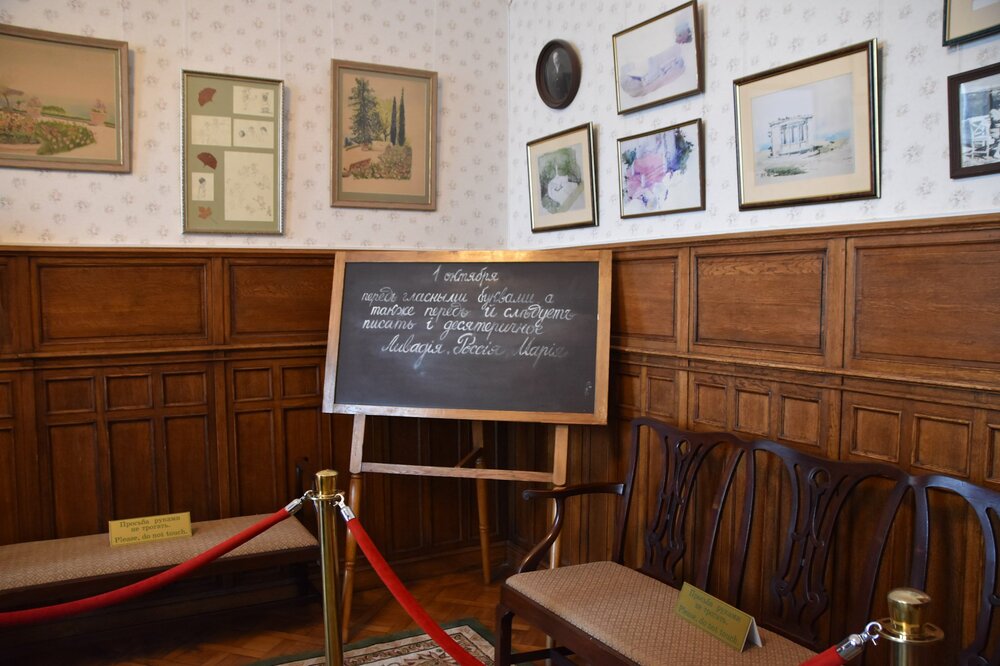 1 октября
передъ гласными буквами а
также передъ й слѣдуетъ
писать і десятеричное
Ливадія, Россія, Марія
Просьба руками
не трогать.
Please, do not touch.
Просьба руками
не трогать.
Please, do not touch.